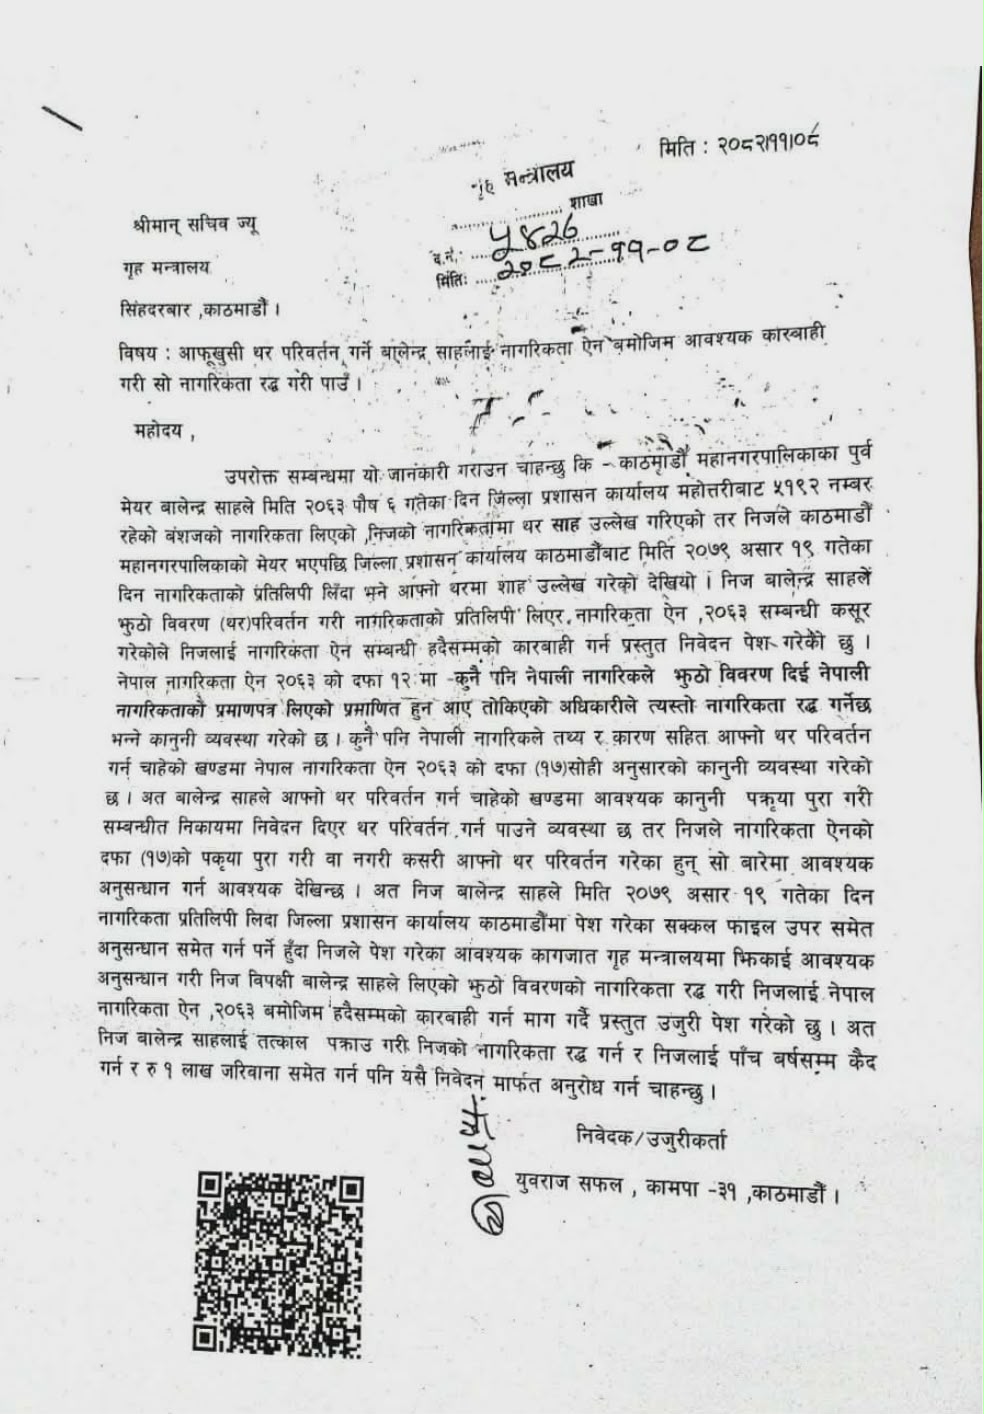 मिति : २०८२।११।०८
गृह मन्त्रालय
शाखा
श्रीमान् सचिव ज्यू
द.नं.: ५४२६
गृह मन्त्रालय
मिति: २०८२-११-०८
सिंहदरबार ,काठमाडौं ।
विषय : आफूखुसी थर परिवर्तन गर्ने बालेन्द्र साहलाई नागरिकता ऐन बमोजिम आवश्यक कारबाही
गरी सो नागरिकता रद्ध गरी पाउँ ।
महोदय ,
उपरोक्त सम्बन्धमा यो जानकारी गराउन चाहन्छु कि - काठमाडौं महानगरपालिकाका पुर्व
मेयर बालेन्द्र साहले मिति २०६३ पौष ६ गतेका दिन जिल्ला प्रशासन कार्यालय महोत्तरीबाट ५१९२ नम्बर
रहेको बंशजको नागरिकता लिएको ,निजको नागरिकतामा थर साह उल्लेख गरिएको तर निजले काठमाडौं
महानगरपालिकाको मेयर भएपछि जिल्ला प्रशासन कार्यालय काठमाडौंबाट मिति २०७९ असार १९ गतेका
दिन नागरिकताको प्रतिलिपी लिँदा भने आफ्नो थरमा शाह उल्लेख गरेको देखियो । निज बालेन्द्र साहले
झुठो विवरण (थर)परिवर्तन गरी नागरिकताको प्रतिलिपी लिएर नागरिकता ऐन ,२०६३ सम्बन्धी कसूर
गरेकोले निजलाई नागरिकता ऐन सम्बन्धी हदैसम्मको कारबाही गर्न प्रस्तुत निवेदन पेश गरेको छु ।
नेपाल नागरिकता ऐन २०६३ को दफा १२ मा -कुनै पनि नेपाली नागरिकले झुठो विवरण दिई नेपाली
नागरिकताको प्रमाणपत्र लिएको प्रमाणित हुन आए तोकिएको अधिकारीले त्यस्तो नागरिकता रद्ध गर्नेछ
भन्ने कानुनी व्यवस्था गरेको छ । कुनै पनि नेपाली नागरिकले तथ्य र कारण सहित आफ्नो थर परिवर्तन
गर्न चाहेको खण्डमा नेपाल नागरिकता ऐन २०६३ को दफा (१७)सोही अनुसारको कानुनी व्यवस्था गरेको
छ । अत बालेन्द्र साहले आफ्नो थर परिवर्तन गर्न चाहेको खण्डमा आवश्यक कानुनी पकृया पुरा गरी
सम्बन्धीत निकायमा निवेदन दिएर थर परिवर्तन गर्न पाउने व्यवस्था छ तर निजले नागरिकता ऐनको
दफा (१७)को पकृया पुरा गरी वा नगरी कसरी आफ्नो थर परिवर्तन गरेका हुन् सो बारेमा आवश्यक
अनुसन्धान गर्न आवश्यक देखिन्छ । अत निज बालेन्द्र साहले मिति २०७९ असार १९ गतेका दिन
नागरिकता प्रतिलिपी लिदा जिल्ला प्रशासन कार्यालय काठमाडौंमा पेश गरेका सक्कल फाइल उपर समेत
अनुसन्धान समेत गर्न पर्ने हुँदा निजले पेश गरेका आवश्यक कागजात गृह मन्त्रालयमा झिकाई आवश्यक
अनुसन्धान गरी निज विपक्षी बालेन्द्र साहले लिएको झुठो विवरणको नागरिकता रद्ध गरी निजलाई नेपाल
नागरिकता ऐन ,२०६३ बमोजिम हदैसम्मको कारबाही गर्न माग गर्दै प्रस्तुत उजुरी पेश गरेको छु । अत
निज बालेन्द्र साहलाई तत्काल पक्राउ गरी निजको नागरिकता रद्ध गर्न र निजलाई पाँच बर्षसम्म कैद
गर्न र रु १ लाख जरिवाना समेत गर्न पनि यसै निवेदन मार्फत अनुरोध गर्न चाहन्छु ।
निवेदक/उजुरीकर्ता
युवराज सफल , कामपा -३१ ,काठमाडौं ।